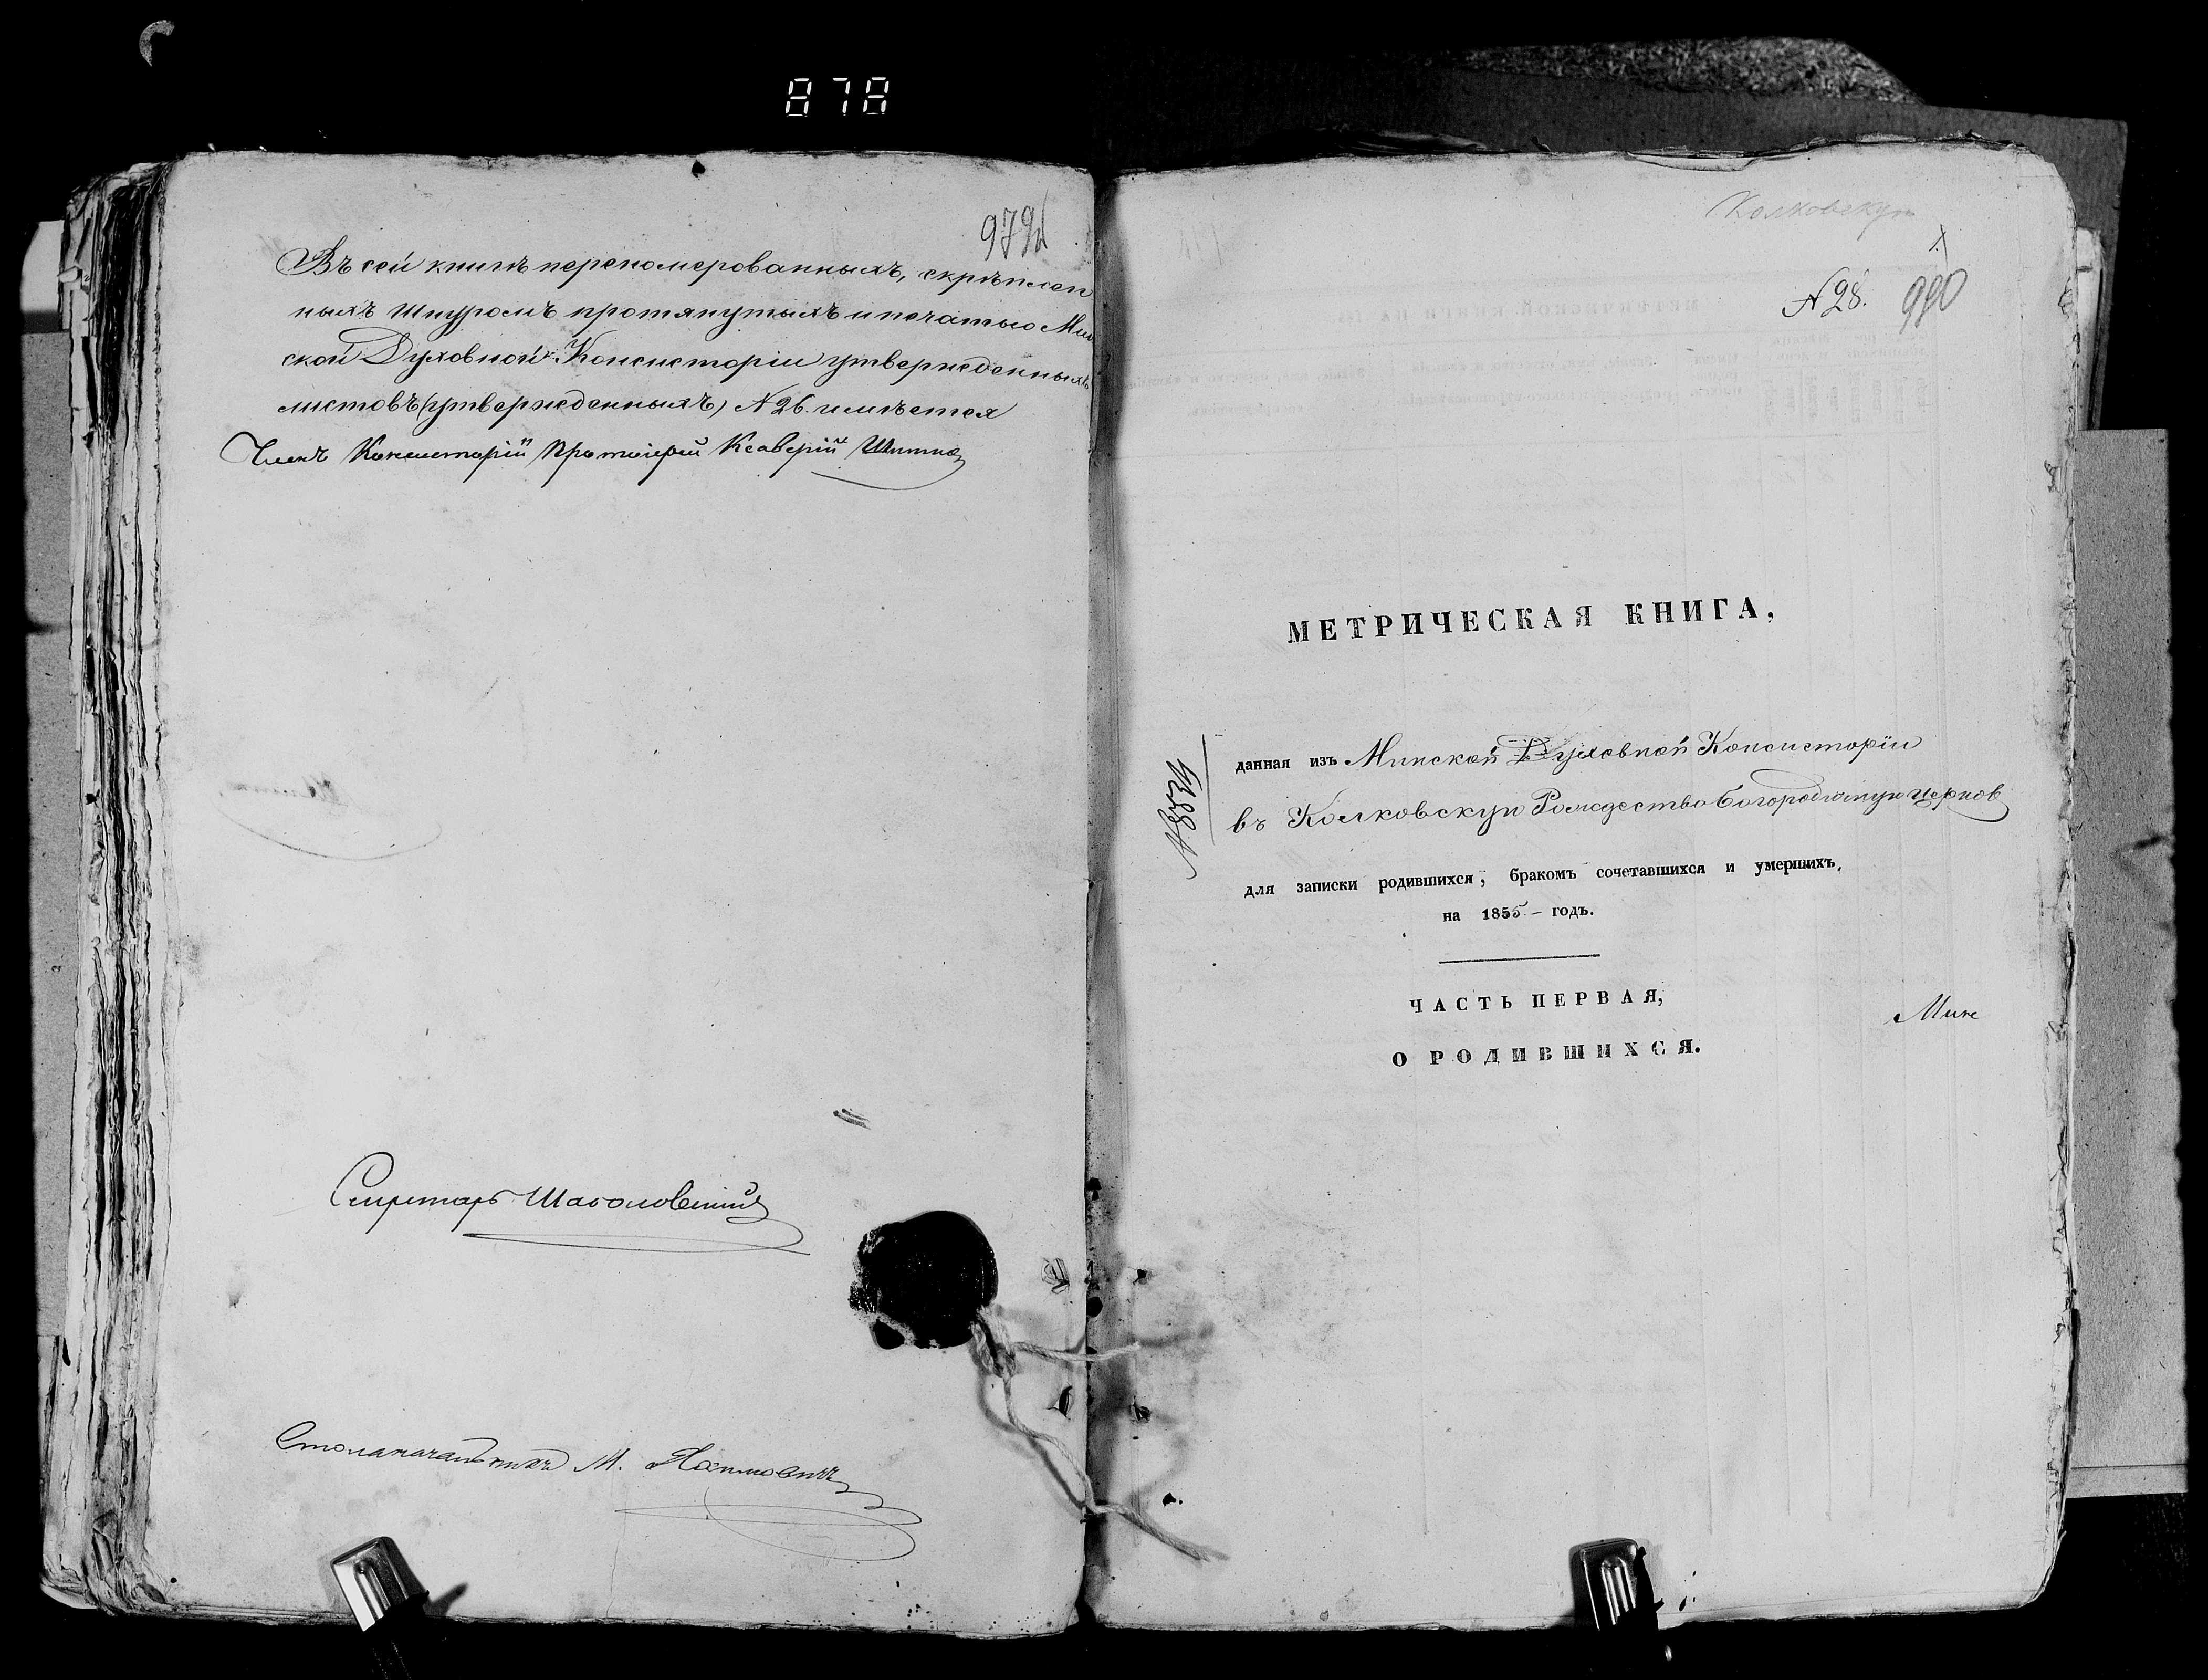 878
Въ сей книгѣ перепомерованныхъ, скрѣплен
ныхъ шнуромъ протянутыхъ и печатью Мин
ской Духовной Консисторіи утвержденныхъ
листовъ (утвержденныхъ) N 26. имѣется
Членъ Консисторіи Протоіерей Ксаверій
Секретарь
Столоначальникъ М.
Колковскую
1
N 28. 980
МЕТРИЧЕСКАЯ КНИГА,
данная изъ Минской Духовной Консисторіи
въ Колковскую Рождество Богородичную церков
N 8834
для записки родившихся, бракомъ сочетавшихся и умершихъ,
на 1855 – годъ.
ЧАСТЬ ПЕРВАЯ,
О РОДИВШИХСЯ.
Минс